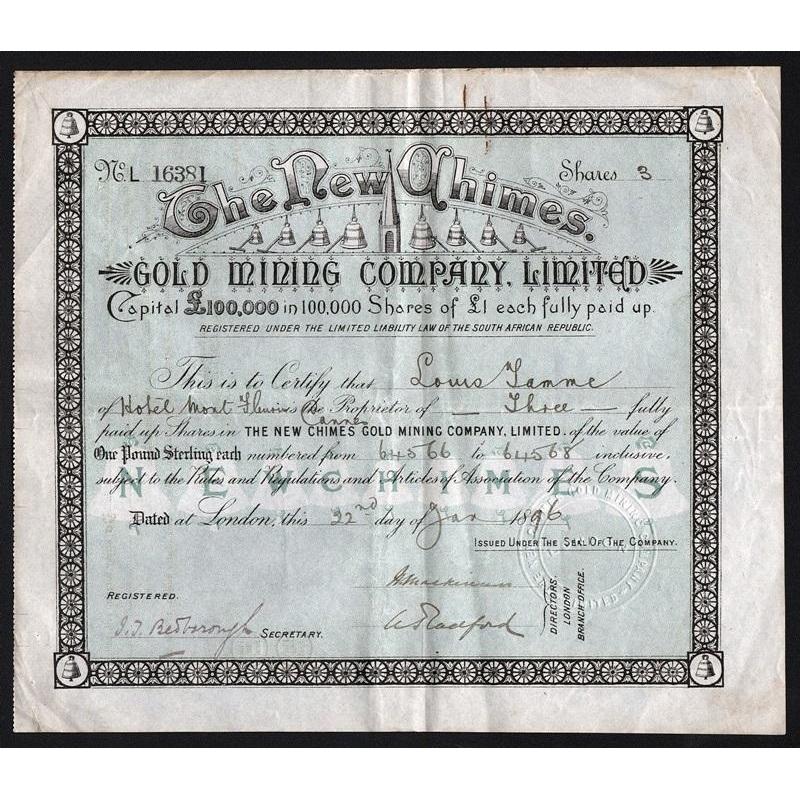 No. L 16381 Shares 3
The New Chimes.
GOLD MINING COMPANY, LIMITED
Capital £100,000 in 100,000 Shares of £1 each fully paid up.
REGISTERED UNDER THE LIMITED LIABILITY LAW OF THE SOUTH AFRICAN REPUBLIC.
This is to Certify that Louis Tamme
of Hotel Mont Fleuri is the Proprietor of — Three — fully
Cannes
paid up Shares in THE NEW CHIMES GOLD MINING COMPANY, LIMITED. of the value of
One Pound Sterling each numbered from 64566 to 64568 inclusive,
subject to the Rules and Regulations and Articles of Association of the Company.
NEW CHIMES
Dated at London, this 22nd day of Jan 1896
ISSUED UNDER THE SEAL OF THE COMPANY.
REGISTERED.
J. J. Bedborough SECRETARY.
A Radford
DIRECTORS.
LONDON
BRANCH OFFICE.